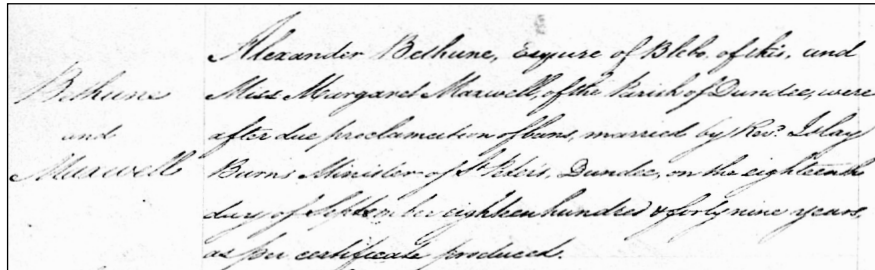 Alexander Bethune, Esqure of Blebo, of this, and
Bethune
Miss Margaret Maxwell, of the Parish of Dundee, were
and
after due proclamation of bans, married by Revd. Islay
Maxwell
Burns Minister of St Peter's, Dundee, on the eighteenth
day of September eighteen hundred & forty nine years,
as per certificate produced.